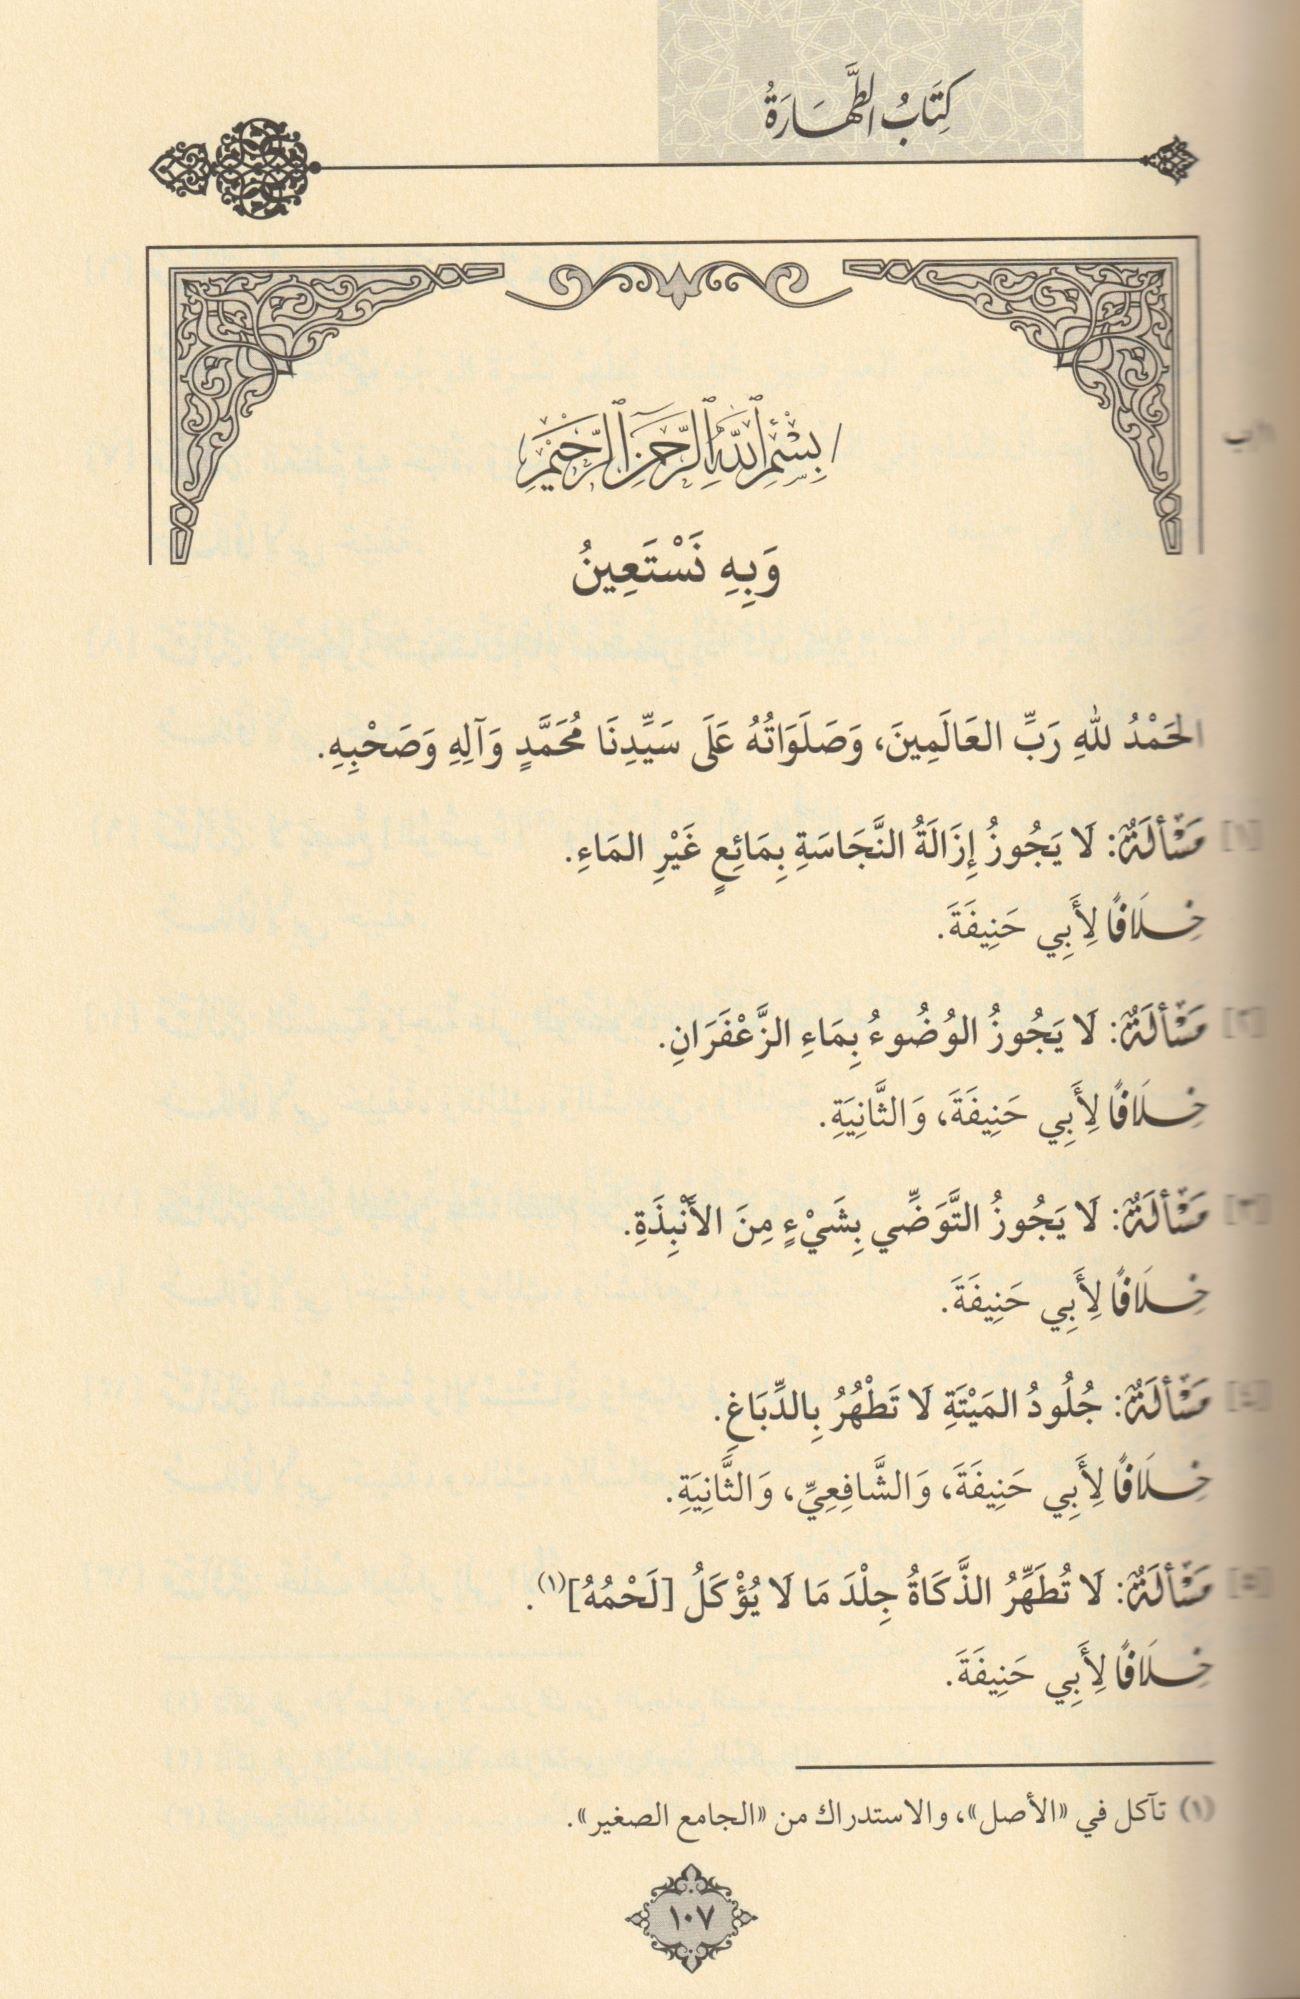 كِتَابُ الطَّهَارَةُ
/ بِسْمِ اللَّهِ الرَّحْمَنِ الرَّحِيمِ
وَبِهِ نَسْتَعِينُ
الحَمْدُ للهِ رَبِّ العَالَمِينَ، وَصَلَوَاتُهُ عَلَى سَيِّدِنَا مُحَمَّدٍ وَآلِهِ وَصَحْبِهِ.
[١] مَسْألَةٌ: لَا يَجُوزُ إِزَالَةُ النَّجَاسَةِ بِمَائِعٍ غَيْرِ المَاءِ.
خِلَافًا لِأَبِي حَنِيفَةَ.
[٢] مَسْألَةٌ: لَا يَجُوزُ الوُضُوءُ بِمَاءِ الزَّعْفَرَانِ.
خِلَافًا لِأَبِي حَنِيفَةَ، وَالثَّانِيَةِ.
[٣] مَسْألَةٌ: لَا يَجُوزُ التَّوَضِّي بِشَيْءٍ مِنَ الأَنْبِذَةِ.
خِلَافًا لِأَبِي حَنِيفَةَ.
[٤] مَسْألَةٌ: جُلُودُ المَيْتَةِ لَا تَطْهُرُ بِالدِّبَاغِ.
خِلَافًا لِأَبِي حَنِيفَةَ، وَالشَّافِعِيِّ، وَالثَّانِيَةِ.
[٥] مَسْألَةٌ: لَا تُطَهِّرُ الذَّكَاةُ جِلْدَ مَا لَا يُؤْكَلُ [لَحْمُهُ](١).
خِلَافًا لِأَبِي حَنِيفَةَ.
(١) تآكل في «الأصل»، والاستدراك من «الجامع الصغير».
١٠٧